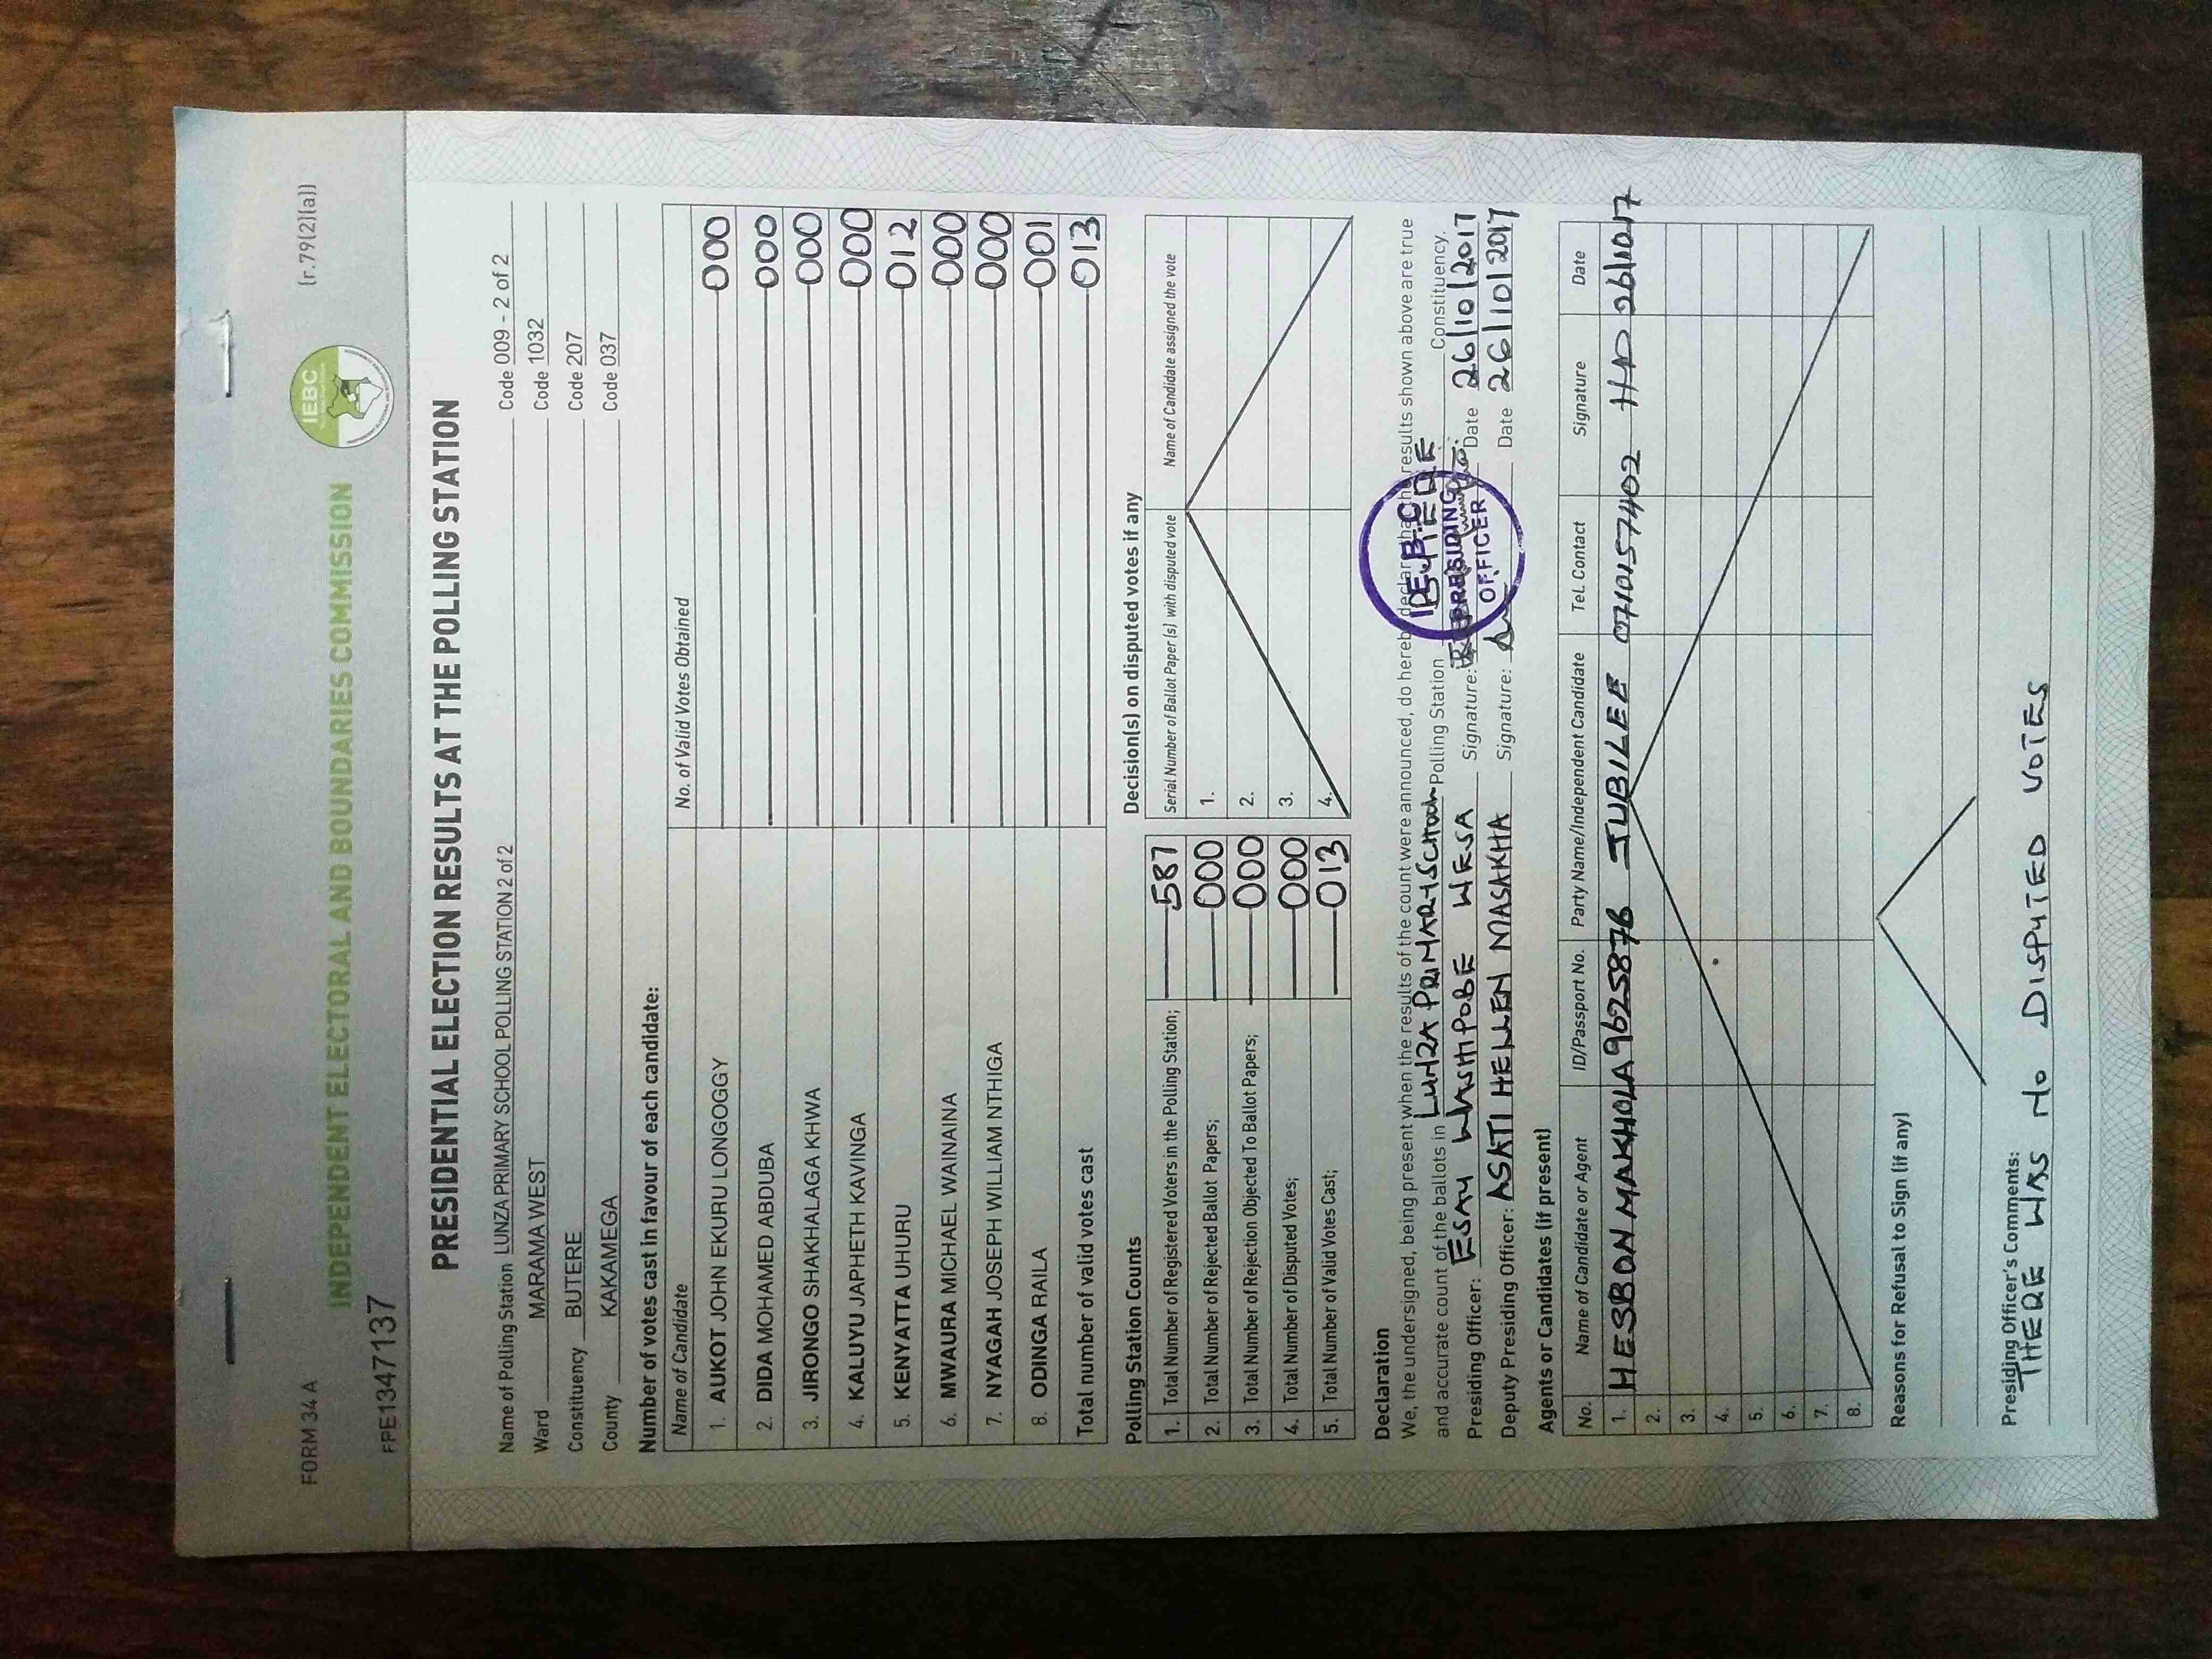 FORM 34 A
(r.79(2)(a))
INDEPENDENT ELECTORAL AND BOUNDARIES COMMISSION
IEBC
FPE1347137
PRESIDENTIAL ELECTION RESULTS AT THE POLLING STATION
Name of Polling Station LUNZA PRIMARY SCHOOL POLLING STATION 2 of 2 Code 009 - 2 of 2
Ward MARAMA WEST Code 1032
Constituency BUTERE Code 207
County KAKAMEGA Code 037
Number of votes cast in favour of each candidate:
Name of Candidate No. of Valid Votes Obtained
1. AUKOT JOHN EKURU LONGOGGY 000
2. DIDA MOHAMED ABDUBA 000
3. JIRONGO SHAKHALAGA KHWA 000
4. KALUYU JAPHETH KAVINGA 000
5. KENYATTA UHURU 012
6. MWAURA MICHAEL WAINAINA 000
7. NYAGAH JOSEPH WILLIAM NTHIGA 000
8. ODINGA RAILA 001
Total number of valid votes cast 013
Polling Station Counts
1. Total Number of Registered Voters in the Polling Station; 587
2. Total Number of Rejected Ballot Papers; 000
3. Total Number of Rejection Objected To Ballot Papers; 000
4. Total Number of Disputed Votes; 000
5. Total Number of Valid Votes Cast; 013
Decision(s) on disputed votes if any
Serial Number of Ballot Paper (s) with disputed vote Name of Candidate assigned the vote
1.
2.
3.
4.
Declaration
We, the undersigned, being present when the results of the count were announced, do hereby declare that the results shown above are true
and accurate count of the ballots in LUNZA PRIMARY SCHOOL Polling Station Constituency.
Presiding Officer: ESAU WASHIPOBE WESA Signature: Date 26/10/2017
Deputy Presiding Officer: ASATI HELLEN MASAKHA Signature: Date 26/10/2017
I.E.B.C
PRESIDING
OFFICER
Agents or Candidates (if present)
No. Name of Candidate or Agent ID/Passport No. Party Name/Independent Candidate Tel. Contact Signature Date
1. HESBON MAKHOLA 9625876 JUBILEE 0710157402 26/10/17
2.
3.
4.
5.
6.
7.
8.
Reasons for Refusal to Sign (if any)
Presiding Officer's Comments:
THERE WAS NO DISPUTED VOTES